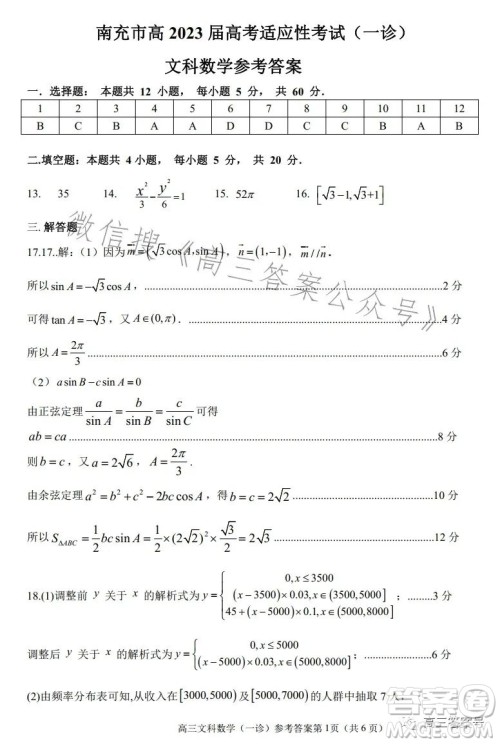 南充市高 2023 届高考适应性考试（一诊）
文科数学参考答案
一．选择题：本题共 12 小题，每小题 5 分，共 60 分．
1 2 3 4 5 6 7 8 9 10 11 12
B C B A A D C D A A B C
二.填空题：本题共 4 小题，每小题 5 分，共 20 分．
13. 35 14. x²/3 - y²/6 = 1 15. 52π 16. [√3-1,√3+1]
三. 解答题
17.17..解:（1）因为 m=(√3cosA,sinA), n=(1,-1), m//n．
所以 sinA=-√3cosA, ……2 分
可得 tanA=-√3，又 A∈(0,π)．……4 分
所以 A=2π/3 ……6 分
（2） asinB-csinA=0
由正弦定理 a/sinA = b/sinB = c/sinC 可得
ab=ca ……8 分
则 b=c，又 a=2√6，A=2π/3.
由余弦定理 a²=b²+c²-2bccosA，所以 b=c=2√2 ……10 分
所以 S△ABC=1/2 bcsinA=1/2×(2√2)²×√3/2=2√3 ……12 分
18.(1)调整前 y 关于 x 的解析式为 y={0,x≤3500 (x-3500)×0.03,x∈(3500,5000] 45+(x-5000)×0.1,x∈(5000,8000] ；……3 分
调整后 y 关于 x 的解析式为 y={0,x≤5000 (x-5000)×0.03,x∈(5000,8000] ……6 分
(2)由频率分布表可知,从收入在[3000,5000)及[5000,7000)的人群中抽取7人,
高三文科数学（一诊）参考答案第1页（共 6 页）
微信搜《高三答案公众号》
高三答案号